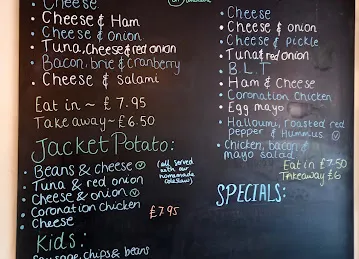 Cheese
Cheese & Ham
Cheese & onion
Tuna, Cheese & red onion
Bacon, brie & cranberry
Cheese & salami
Eat in ~ £7.95
Takeaway ~ £6.50
Jacket Potato:
Beans & cheese ⓥ
Tuna & red onion
Cheese & onion ⓥ
Coronation Chicken
Cheese
(all served
with our
homemade
coleslaw)
£7.95
Kids:
Sausage, chips & beans
Cheese
Cheese & onion
Cheese & pickle
Tuna & red onion
B.L.T
Ham & Cheese
Coronation Chicken
Egg mayo
Halloumi, roasted red
pepper & Hummus ⓥ
Chicken, bacon &
mayo salad
Eat in £7.50
Takeaway £6
SPECIALS: